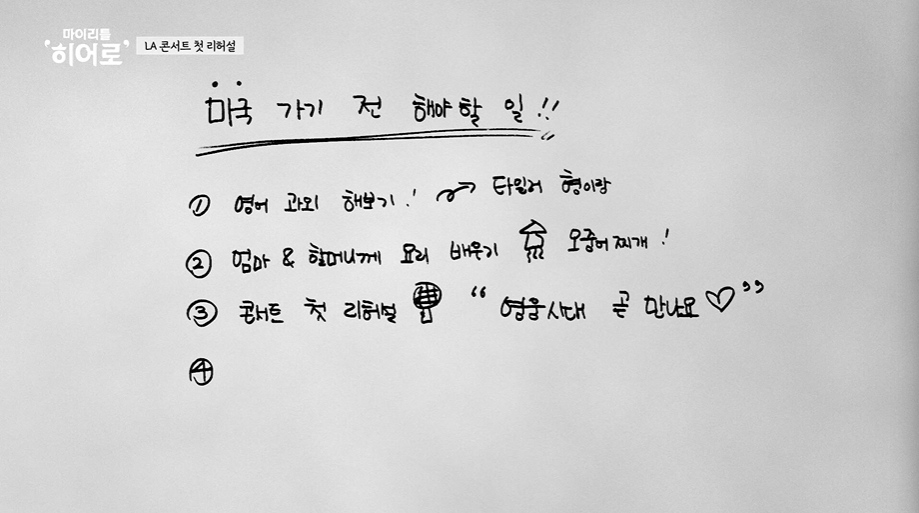 마이 리틀
'히어로'
LA 콘서트 첫 리허설
미국 가기 전 해야할 일!!
① 영어 과외 해보기! → 타일러 형이랑
② 엄마 & 할머니께 요리 배우기 오중어찌개!
③ 콘서트 첫 리허설 “영웅시대 곧 만나요♡”
④